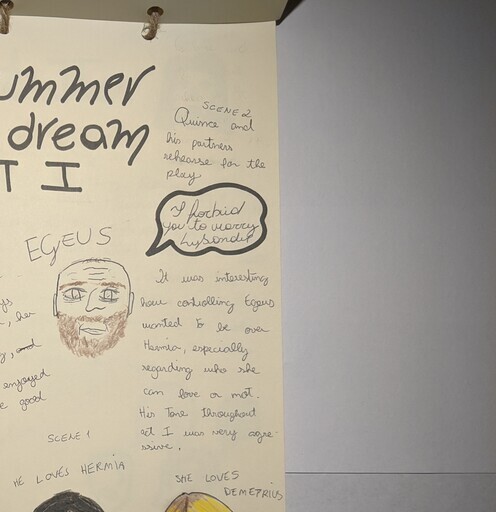 ummer
dream
T I
SCENE 2
Quince and
his partners
rehearse for the
play
I forbid
you to marry
Lysander
EGEUS
It was interesting
how controlling Egeus
wanted to be over
Hermia, especially
regarding who she
can love or not.
His Tone Throughout
act I was very agre-
ssive.
ys
, her
, and
enjoyed
e good
SCENE 1
HE LOVES HERMIA
SHE LOVES
DEMETRIUS